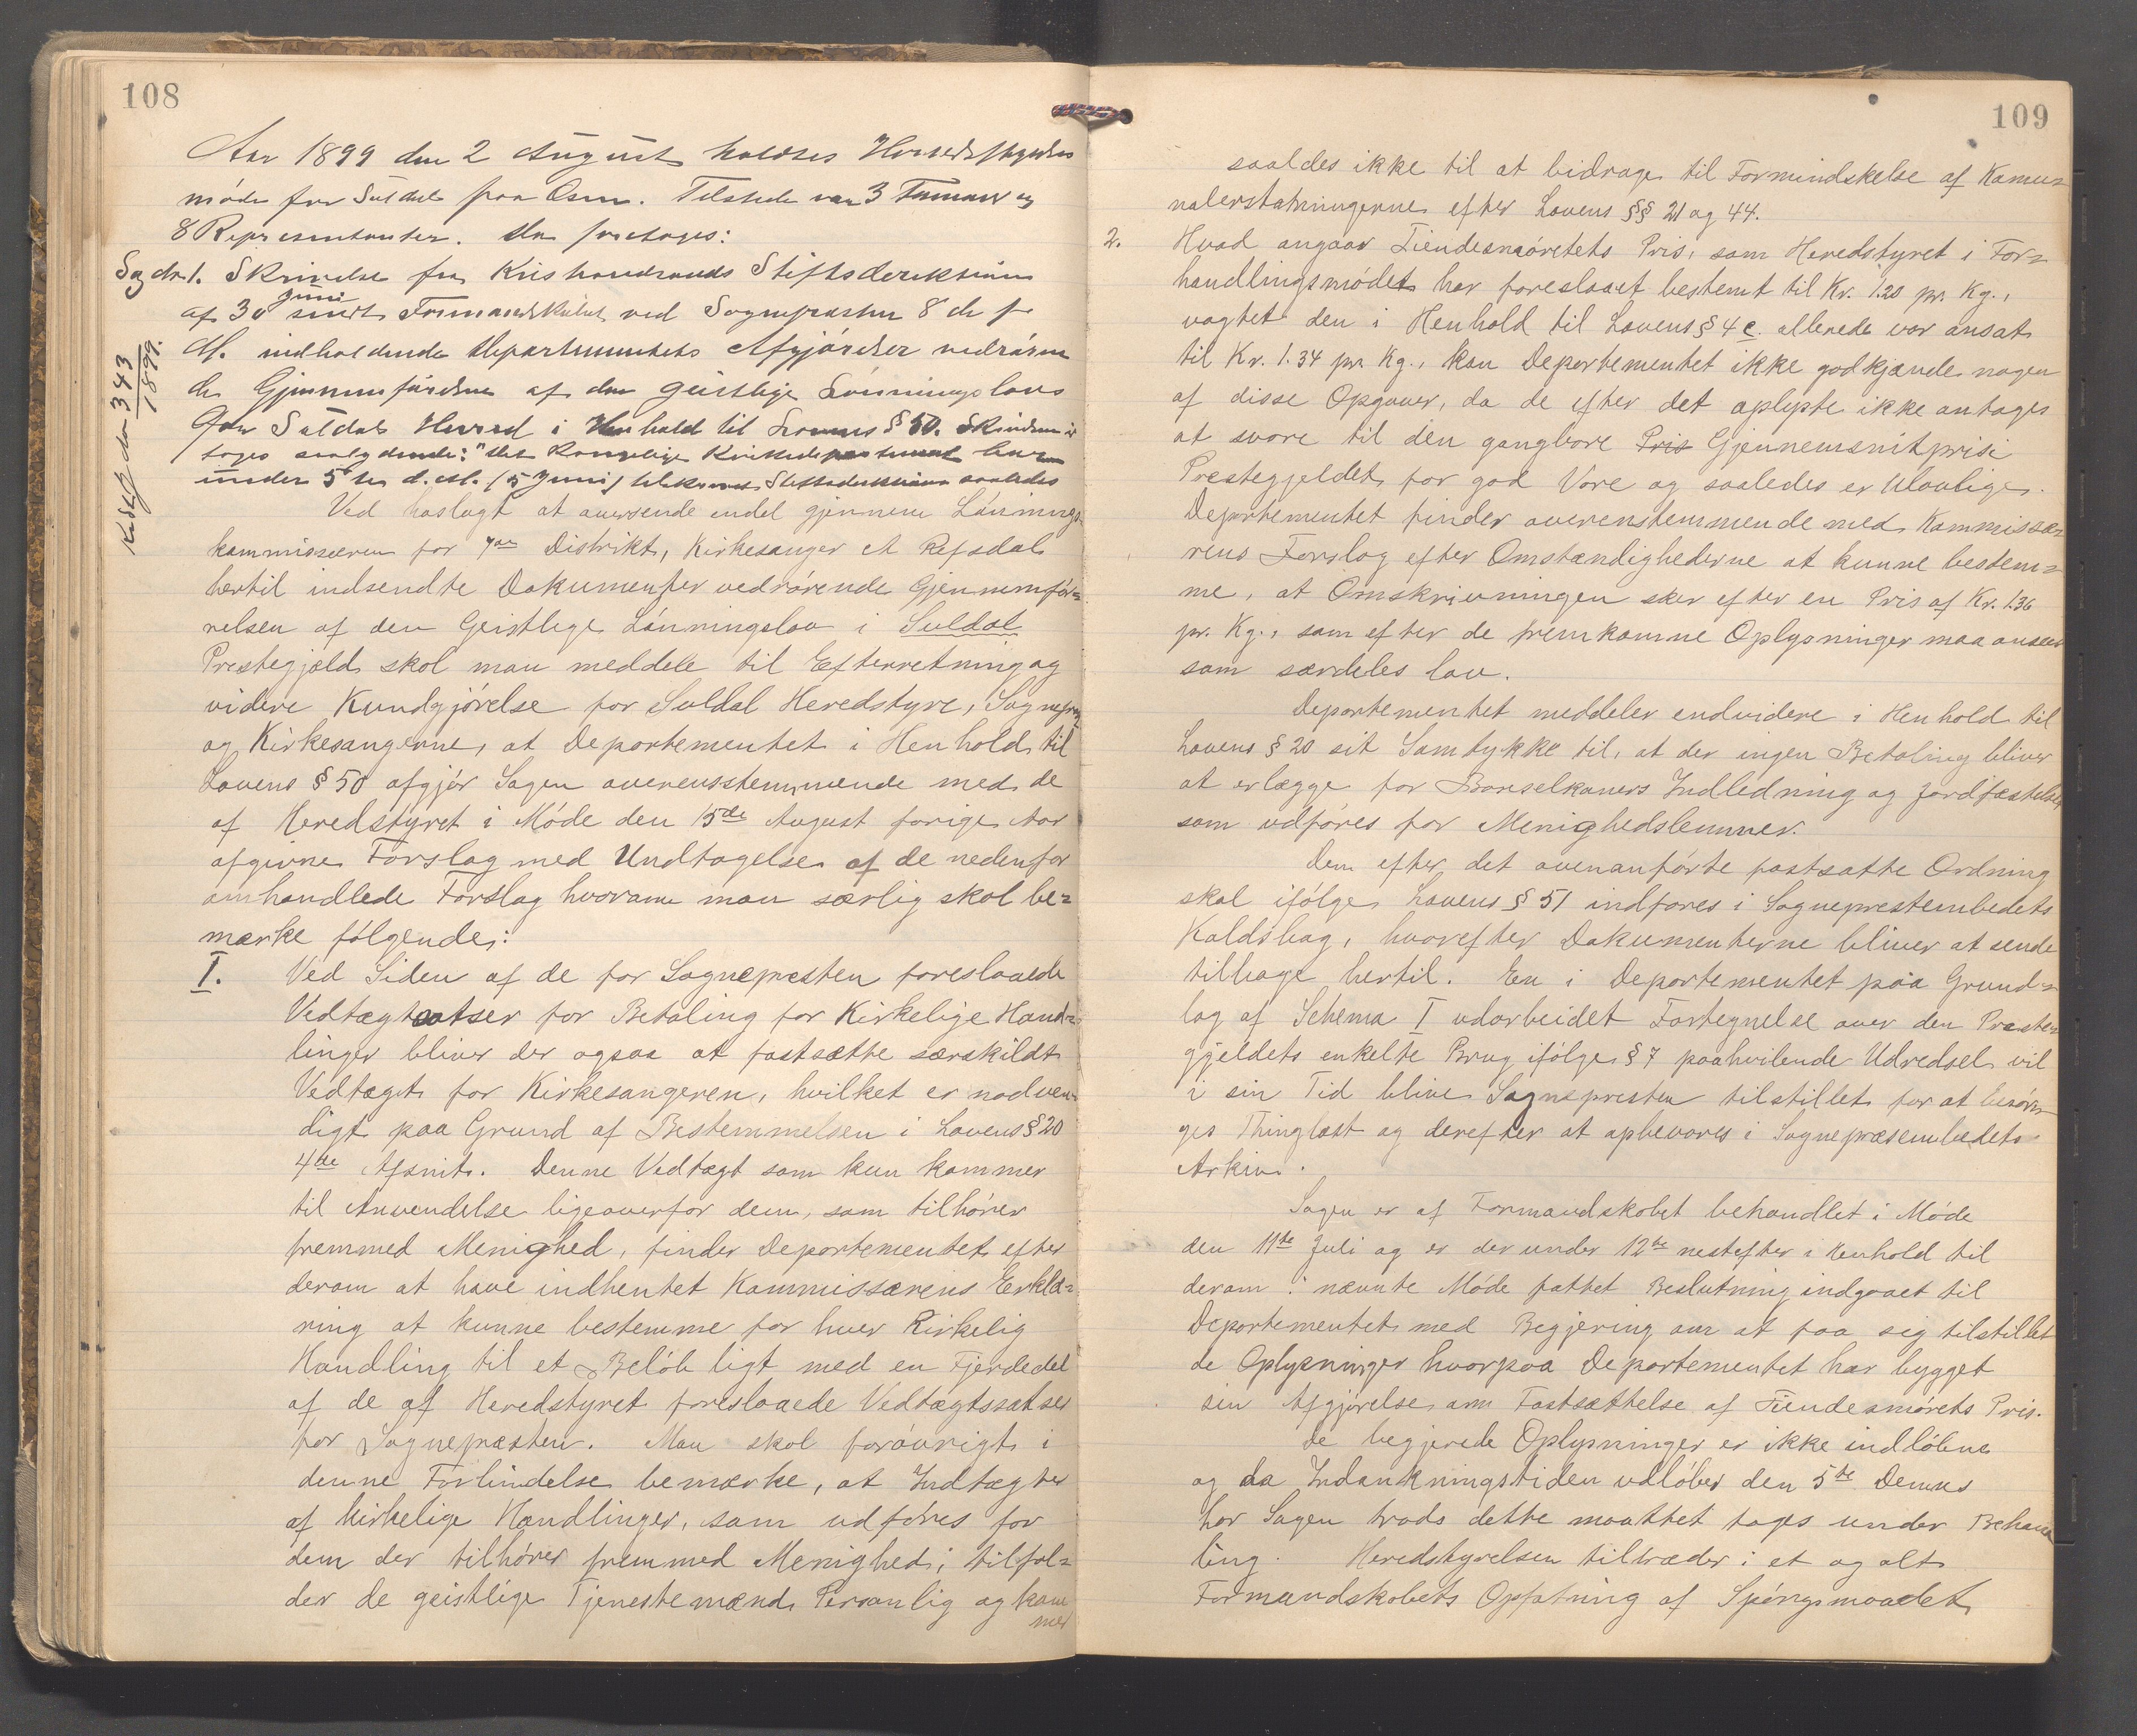 108
Aar 1899 den 2 August holdtes Herredsstyrelses
møde for Suldal paa Osen. Tilstede var 3 Formænd og
8 Representanter. Da foretoges:
Sag do 1. Skrivelse fra Kristiansands Stiftsdirektion
af 30 Juni sendt Formandskabet ved Sognepresten 8 ds f
M. indholdende Departementets Afgjørelser vedrøren
de Gjennemførelsen af den geistlige Lønningslov
for Suldals Herred i Henhold til Lovens § 50. Skrivelsen
Det Kongelige Kirkedepartement har
under 5te d. M. (5 Juni) tilskrevet Stiftsdirektionen saaledes
Kst J do 343/1899.
Ved hoslagt at oversende endel gjennem Lønnings
kommissæren for 7de Distrikt, Kirkesanger A Refsdal
hertil indsendte Dokumenter vedrørende Gjennemfør=
relsen af den Geistlige Lønningslov i Suldal
Prestegjæld skal man meddele til Efterretning og
videre Kundgjørelse for Suldal Heredstyre, Sognepr
og Kirkesangerne, at Departementet i Henhold til
Lovens § 50 afgjør Sagen overensstemmende med de
af Heredstyret i Møde den 15de August forige Aar
afgivne Forslag med Undtagelse af de nedenfor
omhandlede Forslag hvorom man særlig skal be=
mærke følgende:
I. Ved Siden af de for Sognepræsten foreslaaede
Vedtægtsatser for Betaling for Kirkelige Hand=
linger bliver der ogsaa at fastsætte særskildt
Vedtægt for Kirkesangeren, hvilket er nødven
digt paa Grund af Bestemmelsen i Lovens § 20
4de Afsnit. Denne Vedtægt som kun kommer
til Anvendelse ligeoverfor dem, som tilhører
fremmed Menighed, finder Departementet efter
derom at have indhentet Kommissærens Erklæ=
ring at kunne bestemme for hver Kirkelig
Handling til et Beløb ligt med en Fjerdedel
af de af Heredstyret foreslaaede Vedtægtssatser
for Sognepræsten. Man skal forøvrigt i
denne Forbindelse bemærke, at Indtægter
af kirkelige Handlinger, som udføres for
dem der tilhører fremmed Menighed, tilfal=
der de geistlige Tjenestemænd Personlig og kom
mer
109
saaldes ikke til at bidrage til Formindskelse af Komu=
nalerstatningerne efter Lovens §§ 21 og 44.
2. Hvad angaar Tiendesmørets Pris, som Heredstyret i For=
handlingsmødet har foreslaaet bestemt til Kr. 1.20 pr. Kg.,
vagtet den i Henhold til Lovens § 4 c. allerede var ansat
til Kr. 1.34 pr. Kg., kan Departementet ikke godkjænde nogen
af disse Opgaver, da de efter det oplyste ikke antages
at svare til den gangbare Pris Gjennemsnitpris i
Prestegjeldet for god Vare og saaledes er Ulovlige.
Departementet finder overenstemmende med Kommissæ
rens Forslag efter Omstændighederne at kunne bestem=
me, at Omskrivningen sker efter en Pris af Kr. 1.36
pr. Kg., som efter de fremkomne Oplysninger maa ansees
som særdeles lav.
Departementet meddeler endvidere i Henhold til
Lovens § 20 sit Samtykke til, at der ingen Betaling bliver
at erlægge for Barselkoners Indledning og Jordfæstelse
som udføres for Menighedslemmer.
Den efter det ovenanførte fastsatte Ordning
skal ifølge Lovens § 51 indføres i Sogneprestembedets
Kaldsbog, hvorefter Dokumenterne bliver at sende
tilbage hertil. En i Departementet paa Grund=
lag af Schema I udarbeidet Fortegnelse over den Præste
gjeldets enkelte Brug ifølge § 7 paahvilende Udredsel vil
i sin Tid blive Sognepresten tilstillet for at besør
ges Thinglæst og derefter at opbevares i Sognepræsembedets
Arkiv.
Sagen er af Formandskabet behandlet i Møde
den 11te Juli og er der under 12te nestefter i Henhold til
derom i nævnte Møde fattet Beslutning indgaaet til
Departementet med Begjering om at faa sig tilstillet
de Oplysninger hvorpaa Departementet har bygget
sin Afgjørelse om Fastsættelse af Tiendesmørets Pris.
De begjerede Oplysninger er ikke indløbne
og da Indankningstiden udløber den 5te Dennes
har Sagen trods dette maattet tages under Behand
ling. Heredstyrelsen tiltræder i et og alt
Formandskabets Opfatning af Spørgsmaalet